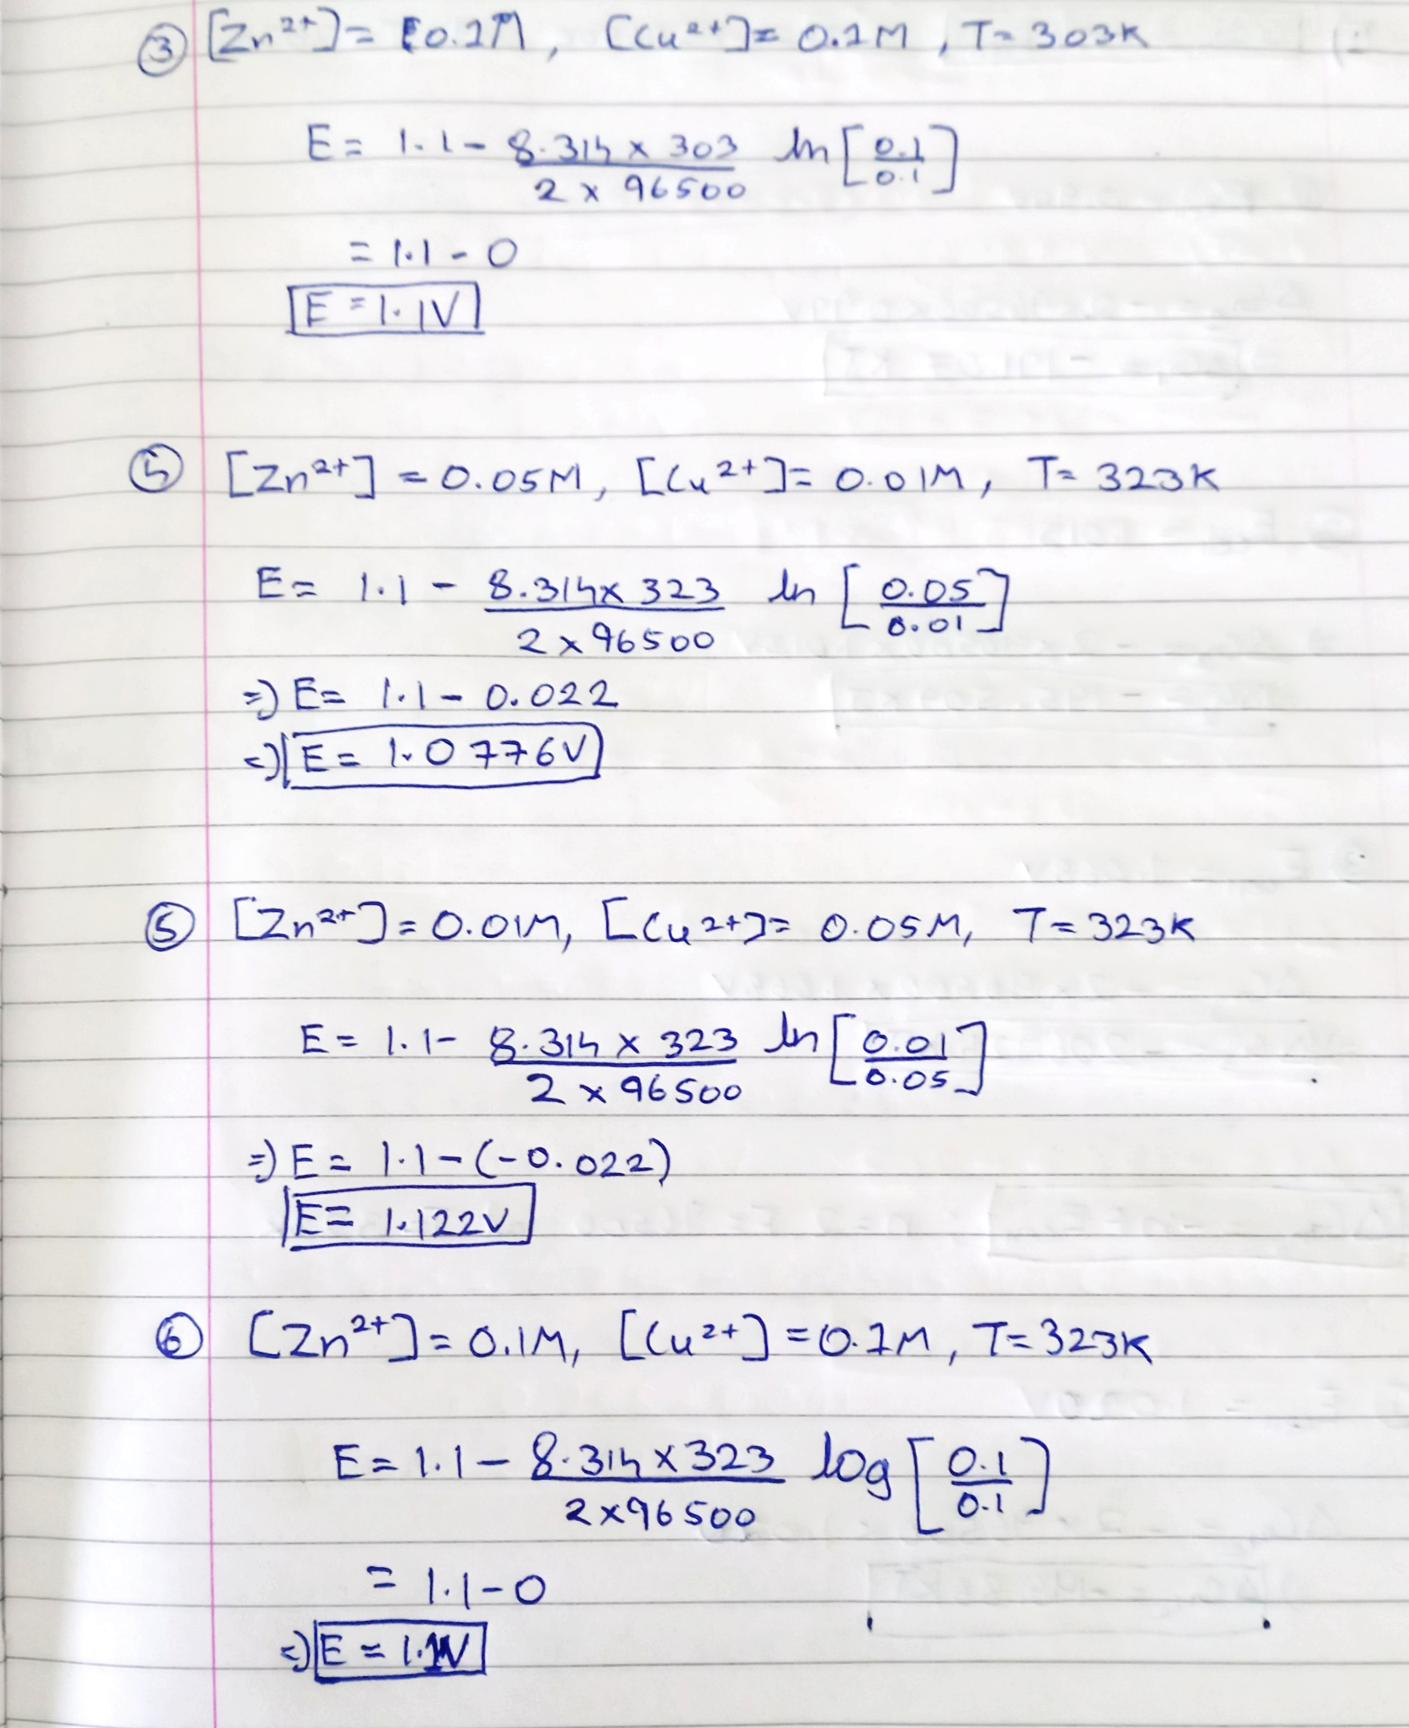 ③ [Zn²⁺] = 0.1M, [Cu²⁺] = 0.1M, T = 303K
E = 1.1 - 8.314 x 303 / 2 x 96500 ln [0.1 / 0.1]
= 1.1 - 0
E = 1.1V
④ [Zn²⁺] = 0.05M, [Cu²⁺] = 0.01M, T = 323K
E = 1.1 - 8.314 x 323 / 2 x 96500 ln [0.05 / 0.01]
=) E = 1.1 - 0.022
=) E = 1.0776V
⑤ [Zn²⁺] = 0.01M, [Cu²⁺] = 0.05M, T = 323K
E = 1.1 - 8.314 x 323 / 2 x 96500 ln [0.01 / 0.05]
=) E = 1.1 - (-0.022)
E = 1.122V
⑥ [Zn²⁺] = 0.1M, [Cu²⁺] = 0.1M, T = 323K
E = 1.1 - 8.314 x 323 / 2 x 96500 log [0.1 / 0.1]
= 1.1 - 0
=) E = 1.1V